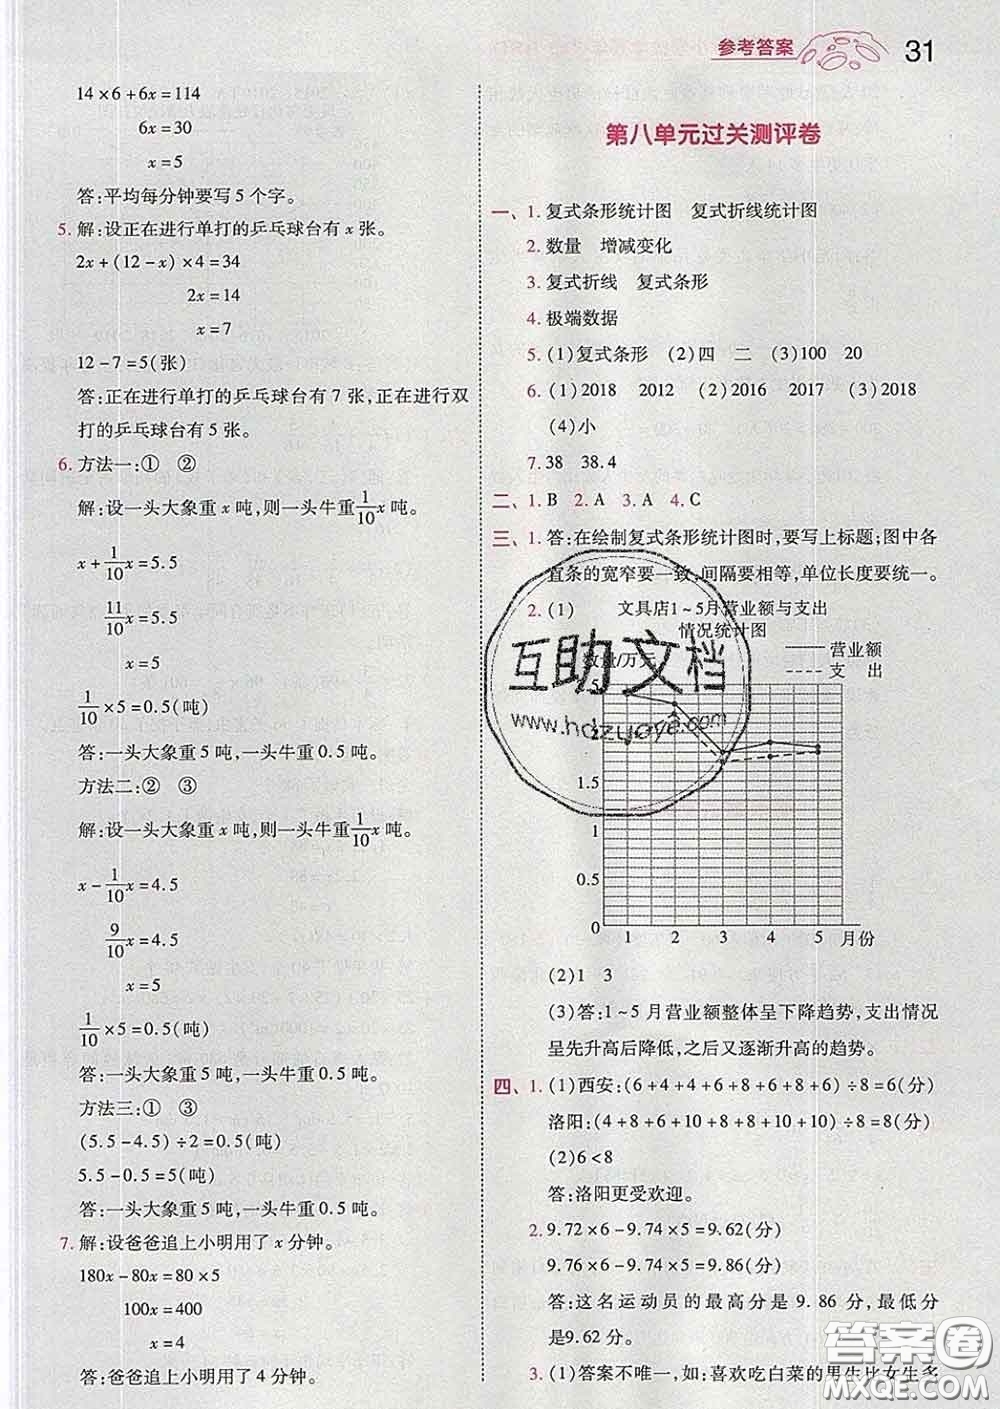 参考答案 31
14×6+6x=114
6x=30
x=5
答:平均每分钟要写5个字。
5. 解:设正在进行单打的乒乓球台有x张。
2x+(12-x)×4=34
2x=14
x=7
12-7=5(张)
答:正在进行单打的乒乓球台有7张,正在进行双
打的乒乓球台有5张。
6. 方法一:① ②
解:设一头大象重x吨,则一头牛重1/10x吨。
x+1/10x=5.5
11/10x=5.5
x=5
1/10×5=0.5(吨)
答:一头大象重5吨,一头牛重0.5吨。
方法二:② ③
解:设一头大象重x吨,则一头牛重1/10x吨。
x-1/10x=4.5
9/10x=4.5
x=5
1/10×5=0.5(吨)
答:一头大象重5吨,一头牛重0.5吨。
方法三:① ③
(5.5-4.5)÷2=0.5(吨)
5.5-0.5=5(吨)
答:一头大象重5吨,一头牛重0.5吨。
7. 解:设爸爸追上小明用了x分钟。
180x-80x=80×5
100x=400
x=4
答:爸爸追上小明用了4分钟。
第八单元过关测评卷
一、1. 复式条形统计图 复式折线统计图
2. 数量 增减变化
3. 复式折线 复式条形
4. 极端数据
5. (1)复式条形 (2)四 二 (3)100 20
6. (1)2018 2012 (2)2016 2017 (3)2018
(4)小
7. 38 38.4
二、1. B 2. A 3. A 4. C
三、1. 答:在绘制复式条形统计图时,要写上标题;图中各
直条的宽窄要一致,间隔要相等,单位长度要统一。
2. (1) 文具店1~5月营业额与支出
情况统计图
营业额
数量/万元 支 出
1.5
1
0.5
0
1 2 3 4 5 月份
(2)1 3
(3)答:1~5月营业额整体呈下降趋势,支出情况
呈先升高后降低,之后又逐渐升高的趋势。
四、1. (1)西安:(6+4+4+6+8+6+8+6)÷8=6(分)
洛阳:(4+8+6+8+8+10+10+10)÷8=8(分)
(2)6<8
答:洛阳更受欢迎。
2. 9.72×6-9.74×5=9.62(分)
9.76×6-9.74×5=9.86(分)
答:这名运动员的最高分是9.86分,最低分
是9.62分。
3. (1)答案不唯一,如:喜欢吃白菜的男生比女生多
互助文档
www.hdzuoye.com
答案圈
MXQE.COM